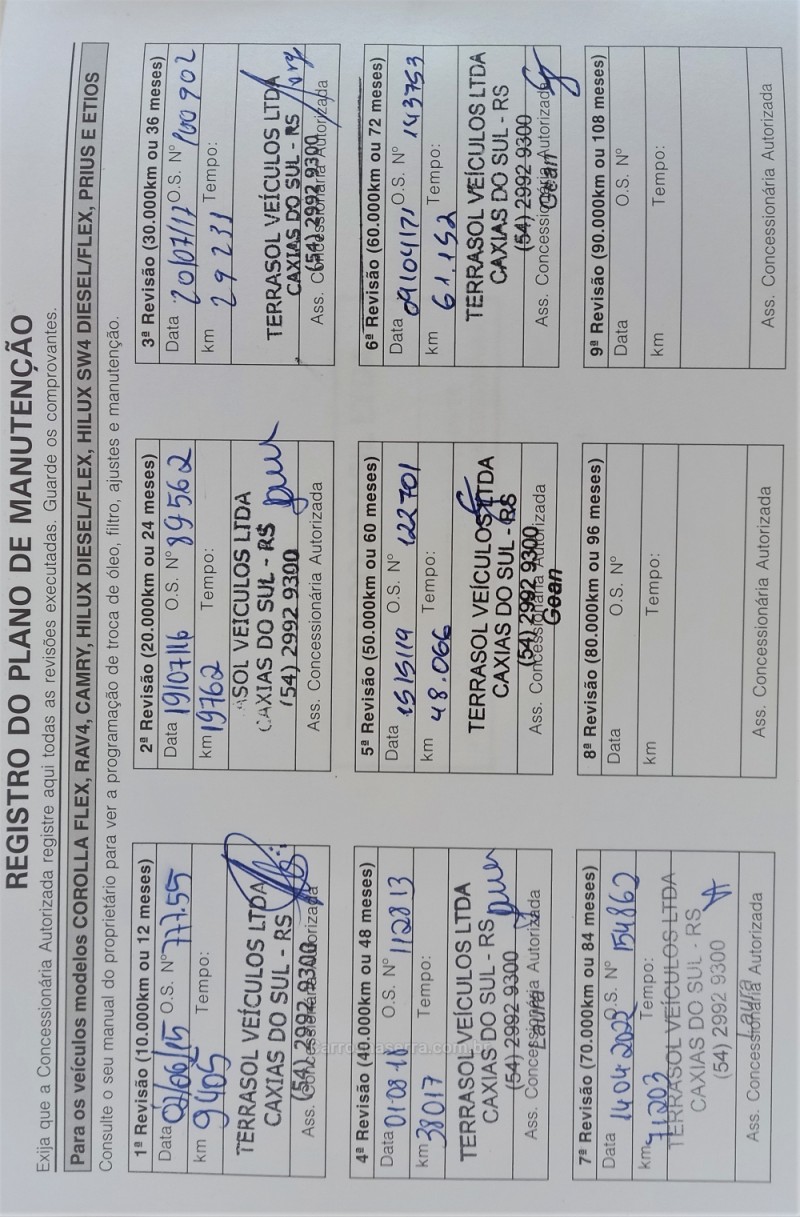 REGISTRO DO PLANO DE MANUTENÇÃO
Exija que a Concessionária Autorizada registre aqui todas as revisões executadas. Guarde os comprovantes.
Para os veículos modelos COROLLA FLEX, RAV4, CAMRY, HILUX DIESEL/FLEX, HILUX SW4 DIESEL/FLEX, PRIUS E ETIOS
Consulte o seu manual do proprietário para ver a programação de troca de óleo, filtro, ajustes e manutenção.
1ª Revisão (10.000km ou 12 meses)
Data 02/06/15 O.S. Nº 77755
km 9405 Tempo:
TERRASOL VEÍCULOS LTDA
CAXIAS DO SUL - RS
(54) 2992 9300
Ass. Concessionária Autorizada
2ª Revisão (20.000km ou 24 meses)
Data 19/07/16 O.S. Nº 89562
km 19762 Tempo:
ASOL VEICULOS LTDA
CAXIAS DO SUL - RS
(54) 2992 9300
Ass. Concessionária Autorizada
3ª Revisão (30.000km ou 36 meses)
Data 20/07/17 O.S. Nº 100902
km 29231 Tempo:
TERRASOL VEÍCULOS LTDA
CAXIAS DO SUL - RS
(54) 2992 9300
Ass. Concessionária Autorizada
4ª Revisão (40.000km ou 48 meses)
Data 01 08 18 O.S. Nº 112813
km 38017 Tempo:
TERRASOL VEÍCULOS LTDA
CAXIAS DO SUL - RS
(54) 2992 9300
Ass. Concessionária Autorizada
Laura
5ª Revisão (50.000km ou 60 meses)
Data 15/5/19 O.S. Nº 122701
km 48.066 Tempo:
TERRASOL VEÍCULOS LTDA
CAXIAS DO SUL - RS
(54) 2992 9300
Ass. Concessionária Autorizada
Gean
6ª Revisão (60.000km ou 72 meses)
Data 09/04/21 O.S. Nº 143753
km 61.152 Tempo:
TERRASOL VEÍCULOS LTDA
CAXIAS DO SUL - RS
(54) 2992 9300
Ass. Concessionária Autorizada
Gean
7ª Revisão (70.000km ou 84 meses)
Data 14 04 2022 O.S. Nº 154862
km 71203 Tempo:
TERRASOL VEÍCULOS LTDA
CAXIAS DO SUL - RS
(54) 2992 9300
Laura
Ass. Concessionária Autorizada
8ª Revisão (80.000km ou 96 meses)
Data O.S. Nº
km Tempo:
Ass. Concessionária Autorizada
9ª Revisão (90.000km ou 108 meses)
Data O.S. Nº
km Tempo:
Ass. Concessionária Autorizada